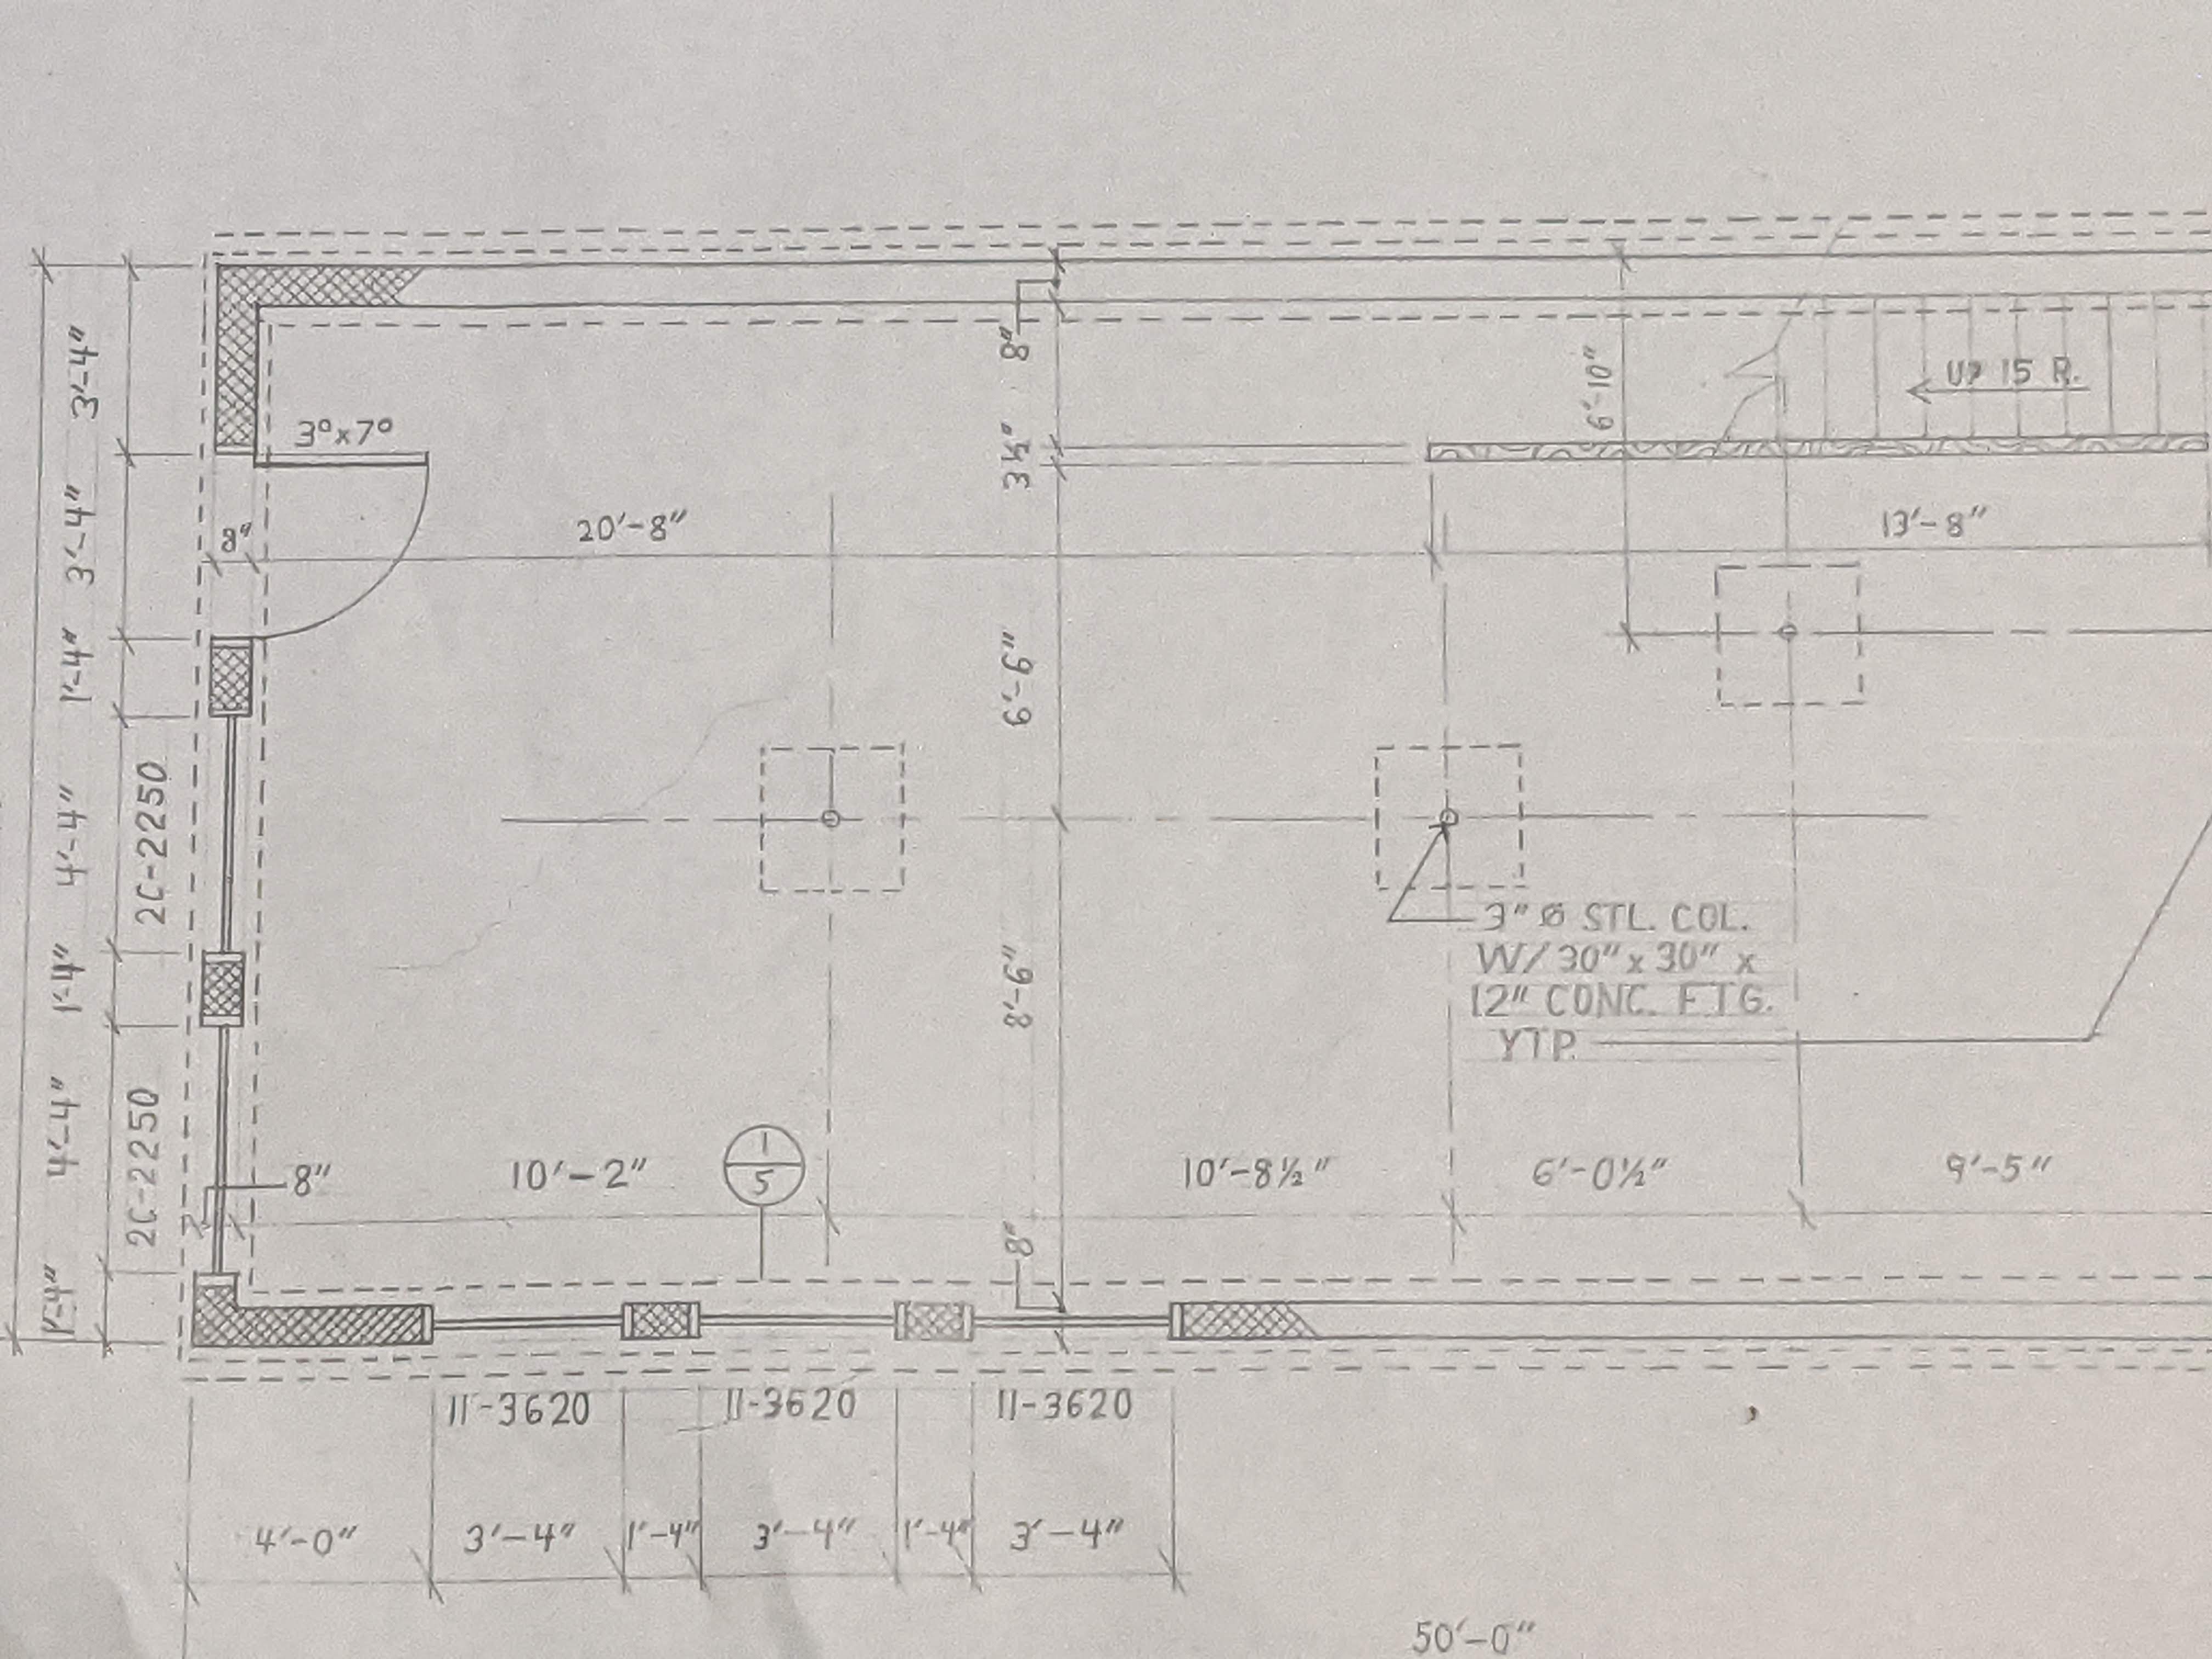 3'-4"
3'-4"
1'-4"
4'-4"
1'-4"
4'-4"
1'-4"
2C-2250
2C-2250
3⁰x7⁰
8"
20'-8"
8"
3½"
6'-6"
8'-6"
8"
6'-10"
UP 15 R.
13'-8"
3" Ø STL. COL.
W/ 30" x 30" x
12" CONC. FTG.
YTP.
8"
10'-2"
1
5
10'-8½"
6'-0½"
9'-5"
11-3620
11-3620
11-3620
4'-0"
3'-4"
1'-4"
3'-4"
1'-4"
3'-4"
50'-0"